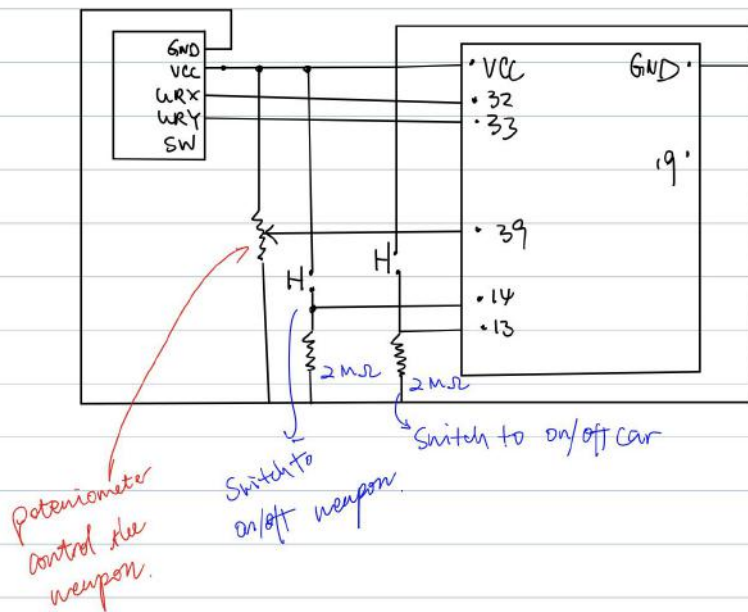 GND
VCC
URX
URY
SW
VCC
GND
32
33
19
39
H
H
14
13
2MΩ
2MΩ
Switch to on/off car
Switch to
on/off weapon.
poteniometer
control the
weapon.